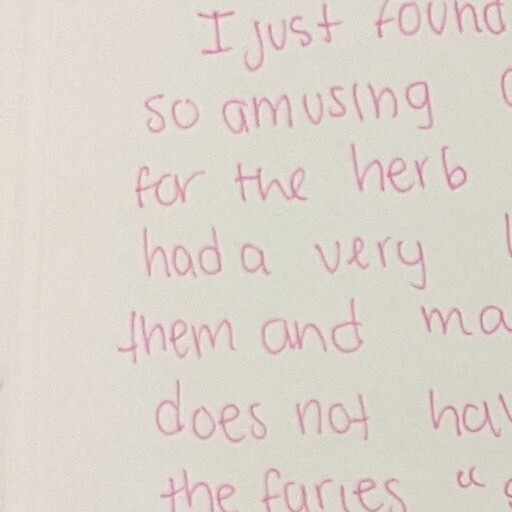 I just found
so amusing
for the herb
had a very
them and ma
does not hav
the faries "